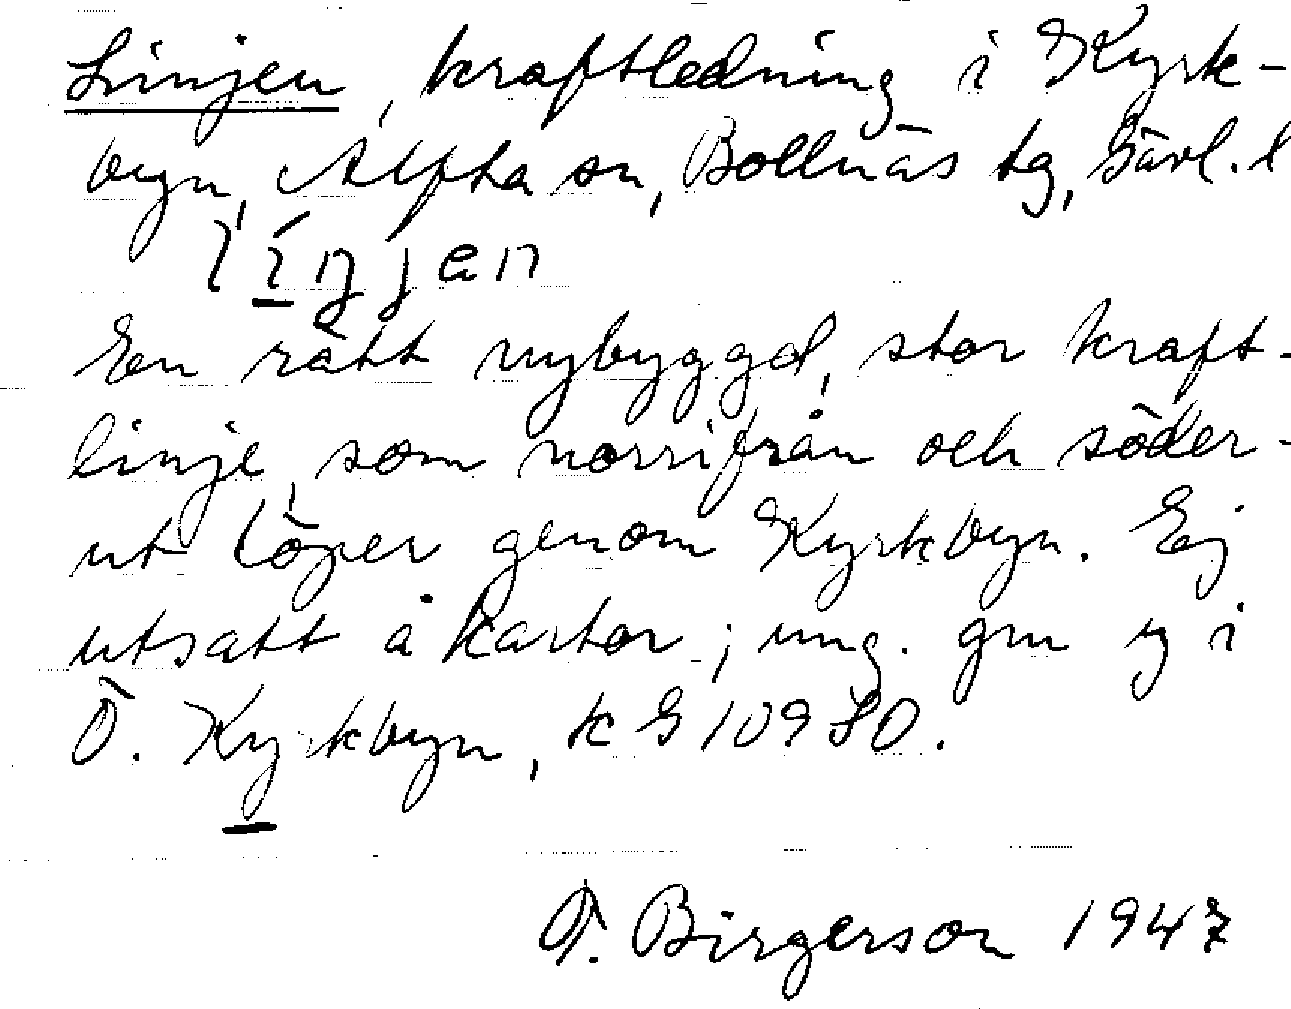 Linjen, kraftledning i Kyrk-
byn, Alfta sn, Bollnäs tg, Gävl. l
En rätt nybyggd, stor kraft-
linje, som norrifrån och söder-
ut löper genom Kyrkbyn. Ej
utsatt å kartor; ung. gm y i
Ö. Kyrkbyn, k G 10980.
Birgerson 1947